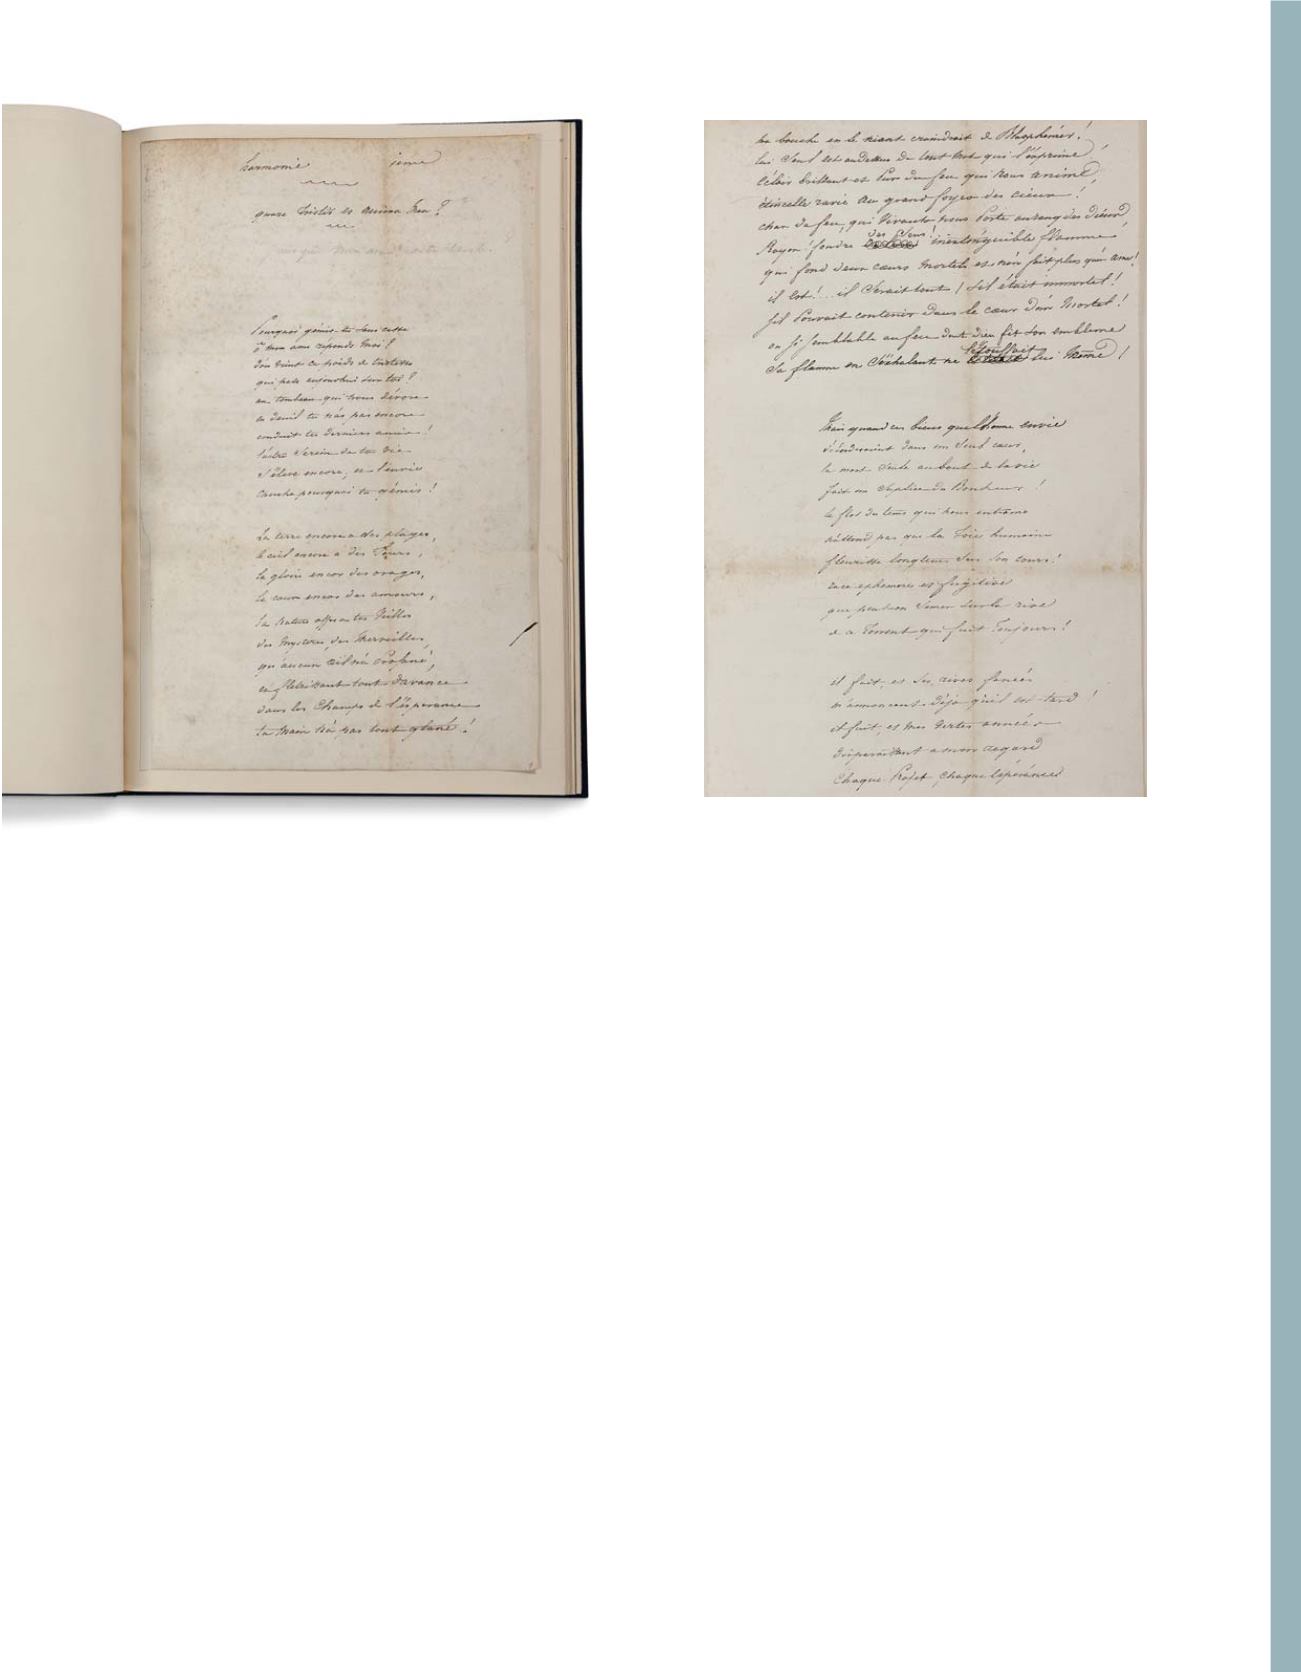 harmonie ieme
quare tristis es anima mea?
Pourquoi gémis-tu sans cesse
ô mon ame reponds moi!
d'ou vient ce poids de tristesse
qui pese aujourdhui sur toi?
au tombeau qui nous dévore
en deuil tu n'as pas encore
conduit tes derniers amis!
l'astre serein de ta vie
s'éleve encore, et l'envie
cherche pourquoi tu gémis!
la terre encore a des plages,
le ciel encore a des Jours,
la gloire encor des orages,
le coeur encor des amours,
la nature offre a tes Veilles
des Mysteres, des Merveilles,
qu'aucun oeil n'a Profané,
et flétrissant tout d'avance
dans les Champs de l'éspérance
ta main n'a pas tout glané!
la bouche en le niant craindrait de Blasphémer!
lui Seul est audessus du tout Mot qui l'exprime!
éclair brillant et Pur du feu qui nous anime,
étincelle ravie au grand foyer des cieux!
char de feu, qui Vivants nous Porte au rang des dieux
Rayon! foudre des sens! inextinguible flamme,
qui fond deux coeurs Mortels et n'en fait plus qu'un ame!
il est!... il Serait tout! s'il était immortel!
s'il Pouvait contenir dans le coeur d'un Mortel!
ou si semblable au feu dont dieu fit son embleme
Sa flamme en s'éxhalant ne l'étouffait lui Même!
Mais quand ces biens que l'homme envie
déborderaient dans un Seul coeur,
la mort Seule au bout de la vie
fait un Suplice du Bonheur!
le flot du tems qui nous entraine
n'attend pas que la Joie humaine
fleurisse longtems sur son cours!
race ephémere et fugitive
que peux-tu Semer sur la rive
de ce Torrent qui fuit Toujours!
il fuit, et ses rives fanées
m'annoncent déja qu'il est tard!
il fuit, et mes Vertes années
disparaissent a mon regard
Chaque Projet, chaque éspérance